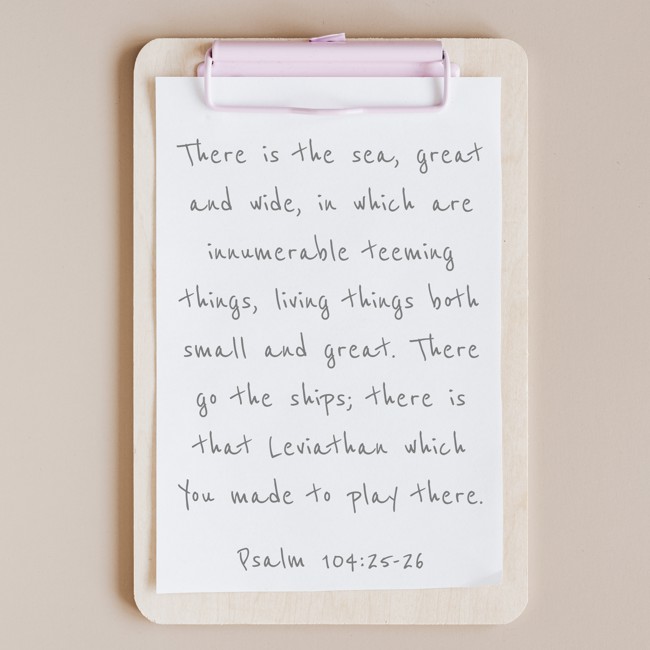 There is the sea, great
and wide, in which are
innumerable teeming
things, living things both
small and great. There
go the ships; there is
that Leviathan which
You made to play there.
Psalm 104:25-26